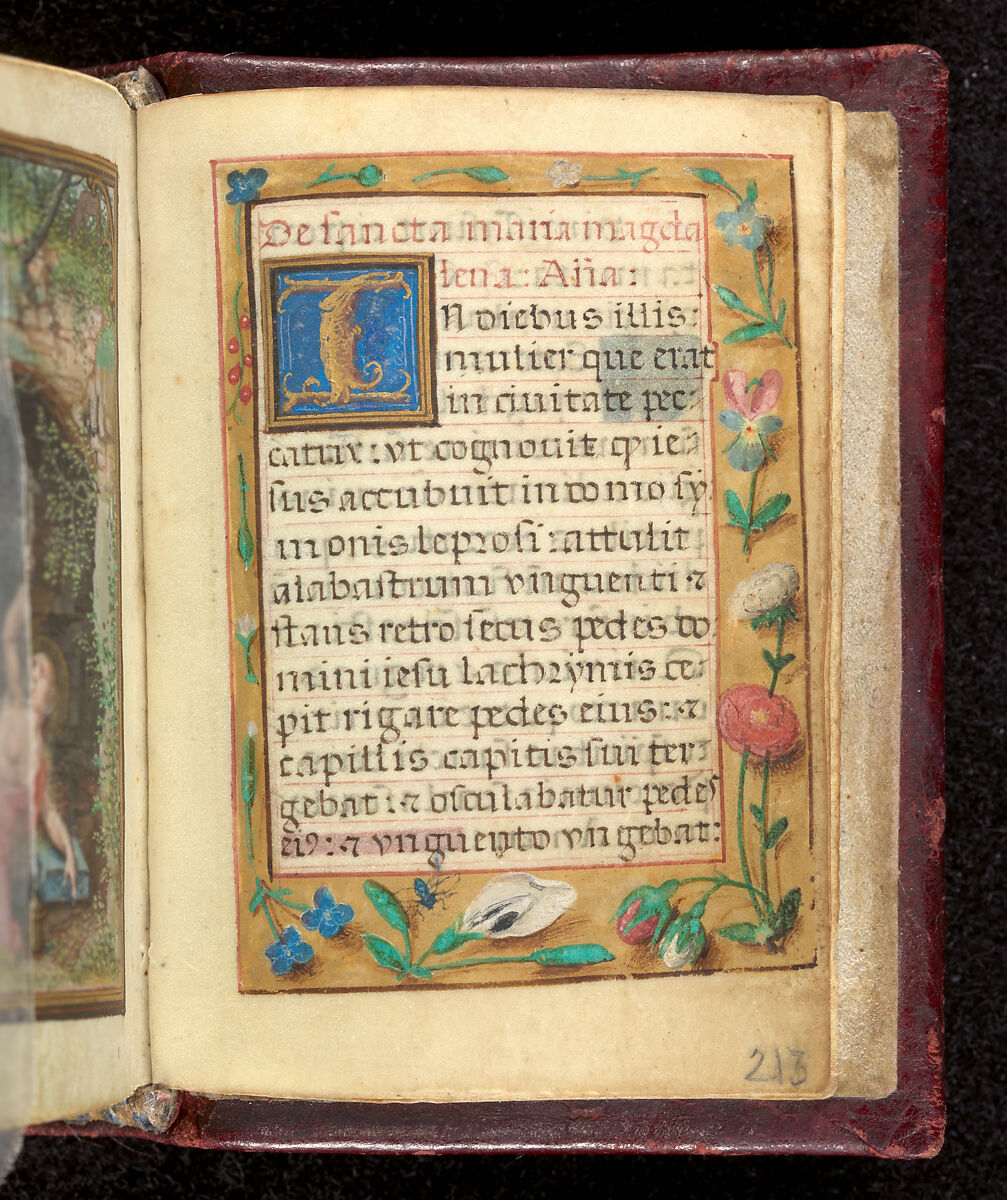 De sancta maria magda
lena: Aña:
IN diebus illis:
mulier que erat
in ciuitate pec-
catrix: vt cognouit qꝫ ie-
sus accubuit in domo sy-
monis leprosi: attulit
alabastrum vnguenti ⁊
stans retro secus pedes do-
mini iesu lachrymis ce-
pit rigare pedes eius: ⁊
capillis capitis sui ter-
gebat: ⁊ osculabatur pedes
eiꝰ: ⁊ vnguento vngebat:
213